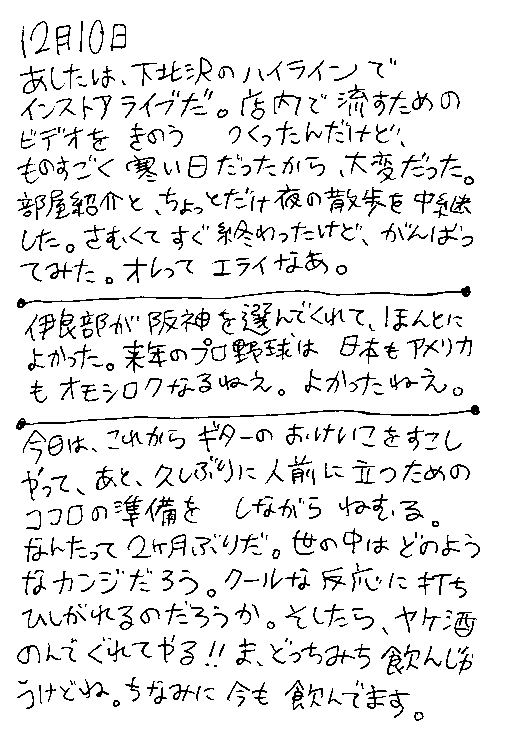 12月10日
あしたは、下北沢のハイラインで
インストアライブだ。店内で流すための
ビデオを きのう つくったんだけど、
ものすごく寒い日だったから、大変だった。
部屋紹介と、ちょっとだけ夜の散歩を中継
した。さむくてすぐ終わったけど、がんばっ
てみた。オレって エライなあ。
伊良部が阪神を選んでくれて、ほんとに
よかった。来年のプロ野球は 日本もアメリカ
もオモシロクなるねえ。よかったねえ。
今日は、これからギターのおけいこをすこし
やって、あと、久しぶりに人前に立つための
ココロの準備を しながら ねむる。
なんたって2ヶ月ぶりだ。世の中はどのよう
なカンジだろう。クールな反応に打ち
ひしがれるのだろうか。そしたら、ヤケ酒
のんでぐれてやる!!ま、どっちみち飲んじゃ
うけどね。ちなみに今も飲んでます。